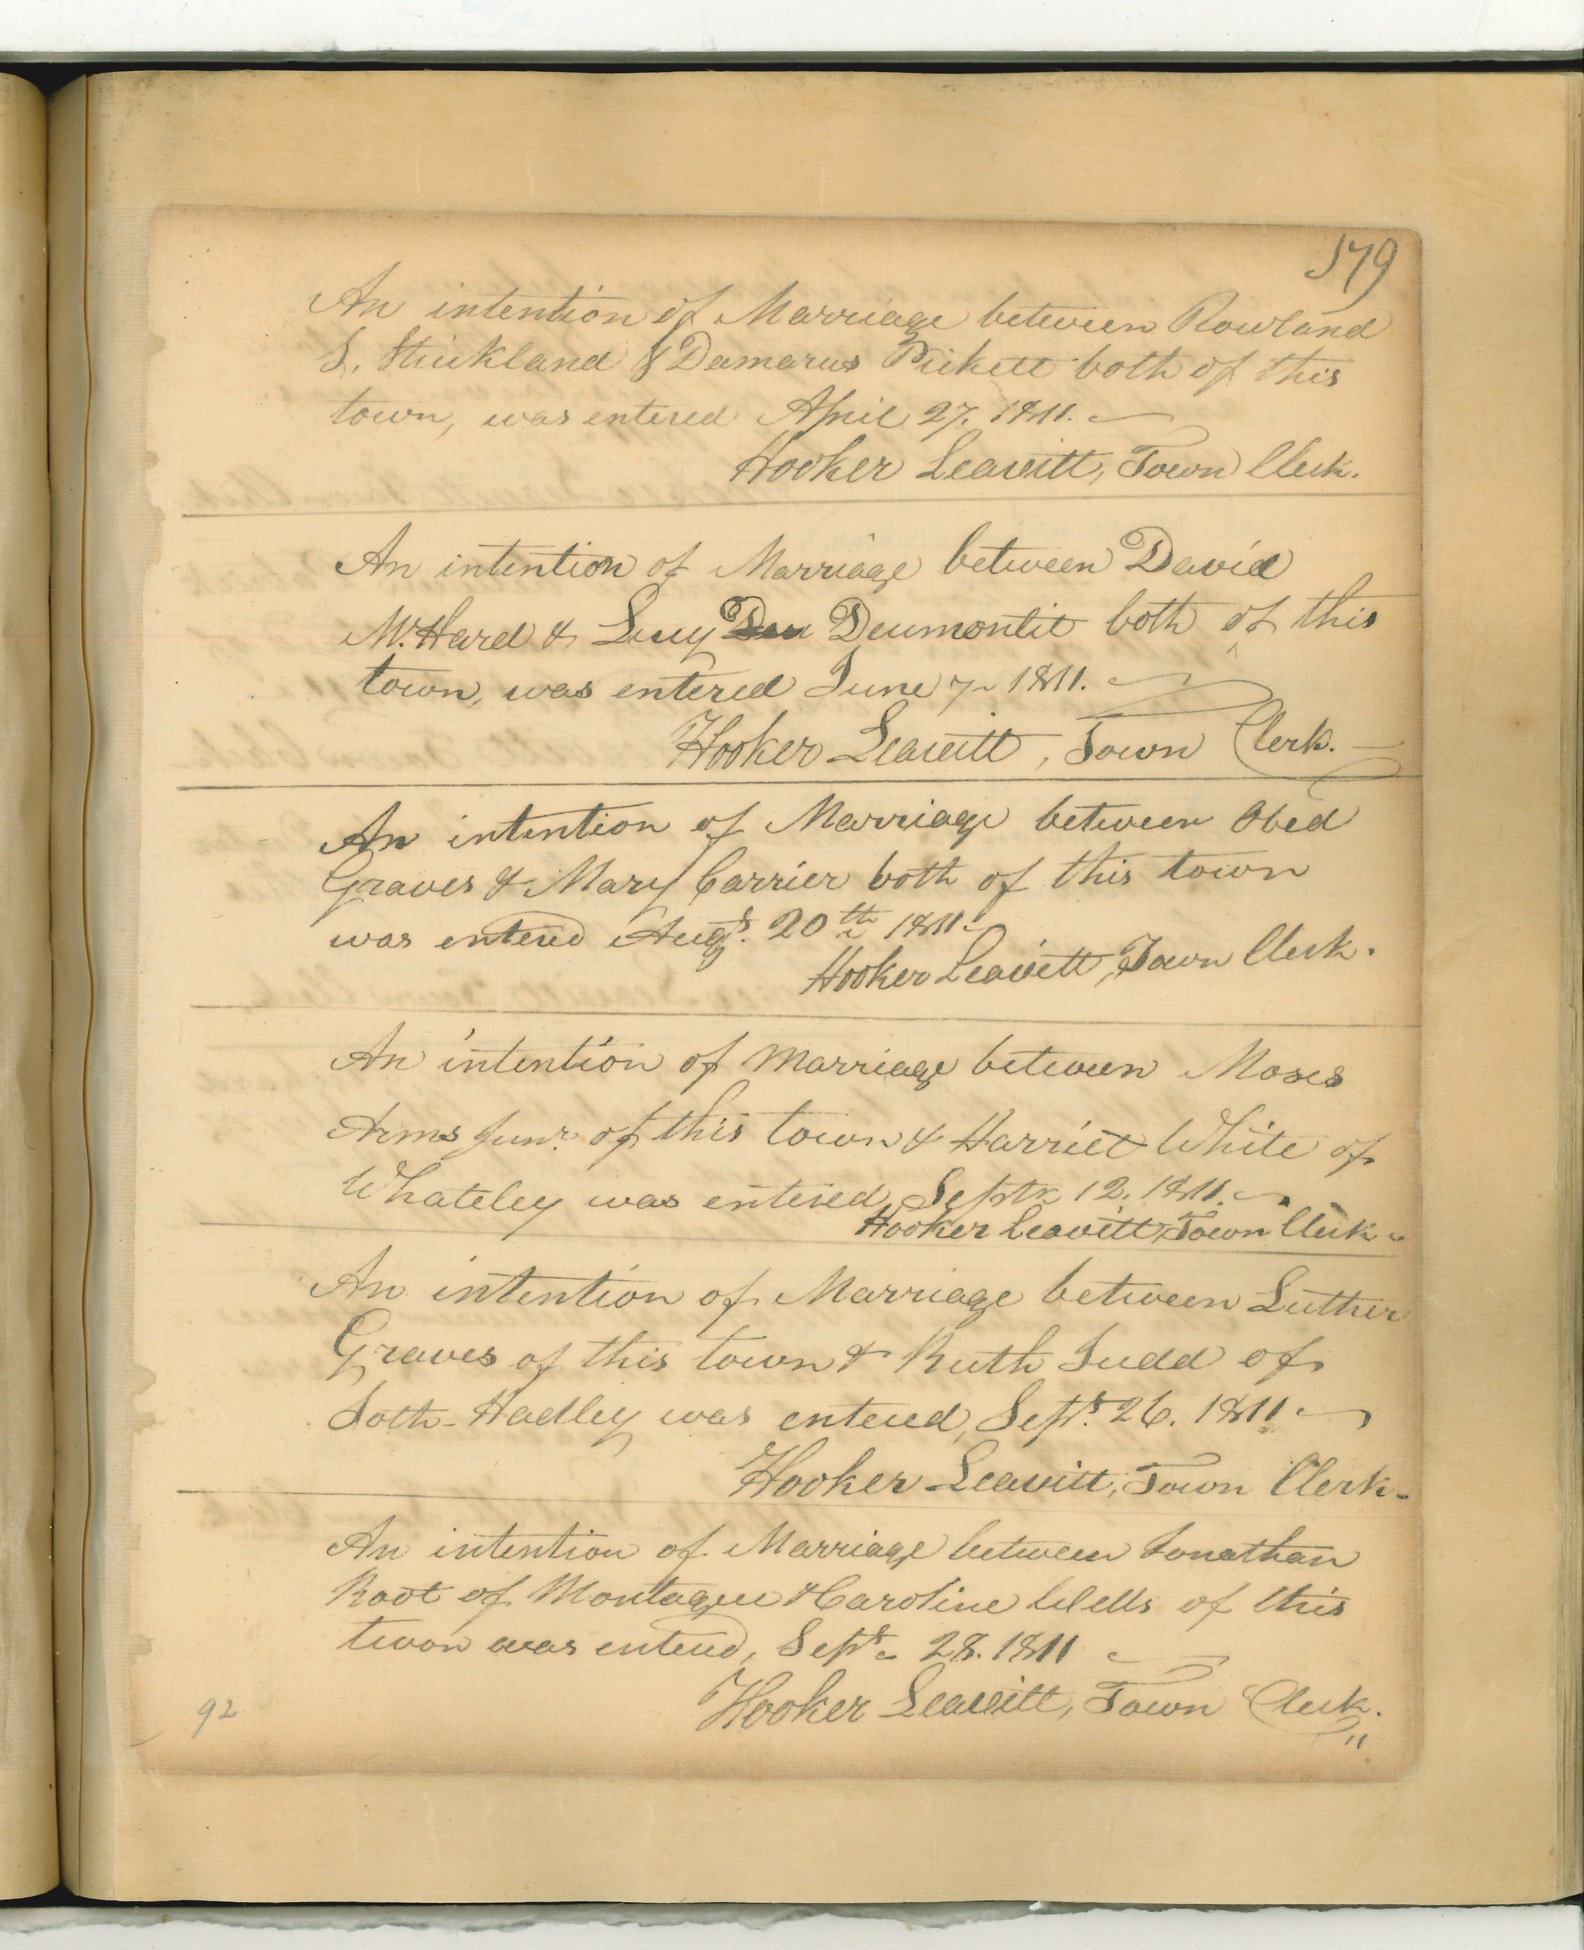 179
An intention of Marriage between Rowland
S. Strickland & Damarus Pickett both of this
town, was entered April 27. 1811.
Hooker Leavitt, Town Clerk.
An intention of Marriage between David
Mc.Hard & Lucy Deumontit both of this
town, was entered June 7 1811.
Hooker Leavitt, Town Clerk.
An intention of Marriage between Obed
Graves & Mary Carrier both of this town
was entered Augst. 20th 1811.
Hooker Leavitt, Town Clerk.
An intention of Marriage between Moses
Arms Junr. of this town & Harriet White of
Whateley was entered, Septr. 12. 1811.
Hooker Leavitt, Town Clerk.
An intention of Marriage between Luther
Graves of this town & Ruth Judd of
Soth-Hadley was entered, Septr. 26. 1811.
Hooker Leavitt, Town Clerk.
An intention of Marriage between Jonathan
Root of Montague & Caroline Wells of this
twon was entered, Septr. 28. 1811
Hooker Leavitt, Town Clerk.
92